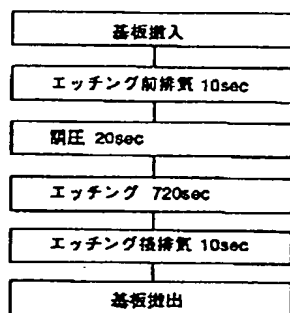 基板搬入
エッチング前排気 10sec
調圧 20sec
エッチング 720sec
エッチング後排気 10sec
基板搬出